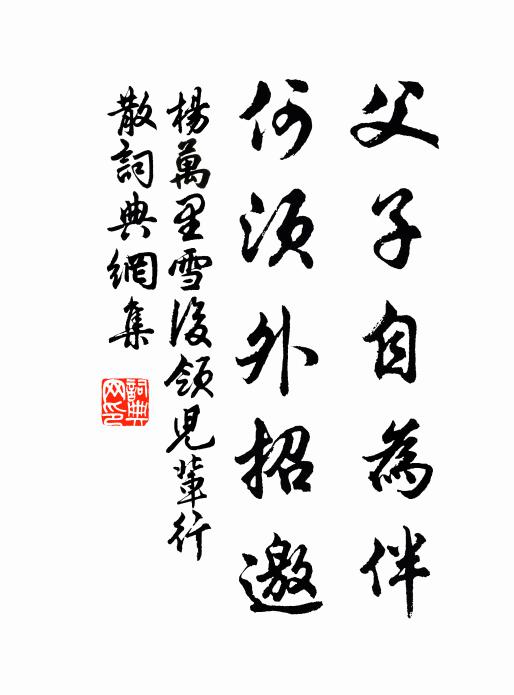 父子自為伴
何須外招邀
楊萬里雪後領兒輩行
散詞典網集
詞典网印